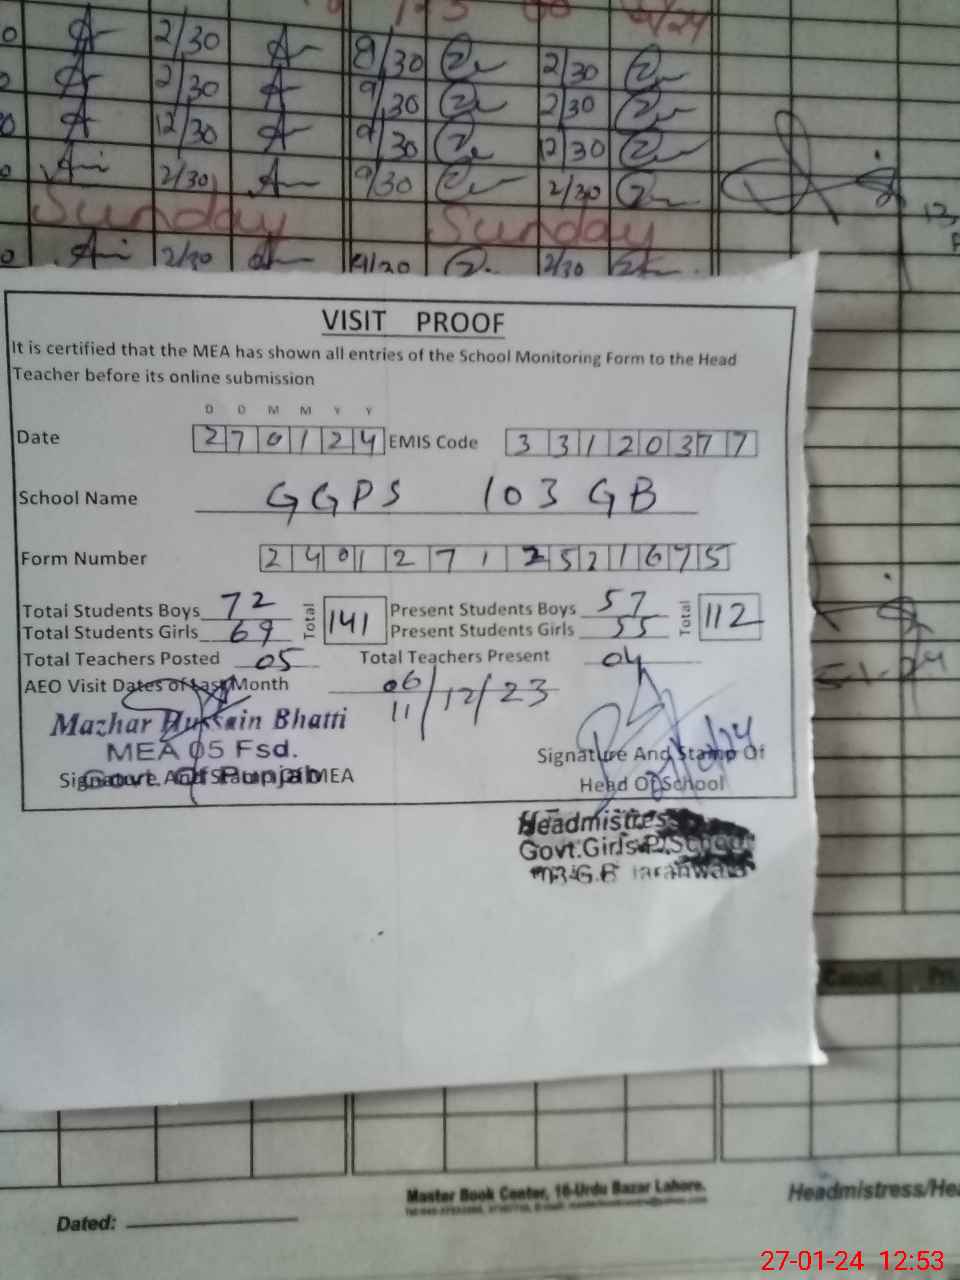 2/30 8/30 2/30
2/30 9/30 2/30
12/30 9/30 12/30
2/30 9/30 2/30
Sunday Sunday
2/30 2/30
VISIT PROOF
It is certified that the MEA has shown all entries of the School Monitoring Form to the Head
Teacher before its online submission
D D M M Y Y
Date 270124 EMIS Code 33120377
School Name GGPS 103 GB
Form Number
Total Students Boys 72 Total 141 Present Students Boys 57 Total 112
Total Students Girls 69 Present Students Girls 55
Total Teachers Posted 05 Total Teachers Present 04
AEO Visit Dates of Last Month 06/11/12/23
Mazhar Hussain Bhatti
MEA 05 Fsd.
Govt. Of Punjab
Signature And Stamp Of MEA
Signature And Stamp Of
Head Of School
Headmistress
Govt.Girls P/School
Casual
Master Book Center, 16-Urdu Bazar Lahore.
Headmistress/Hea
Dated:
27-01-24 12:53